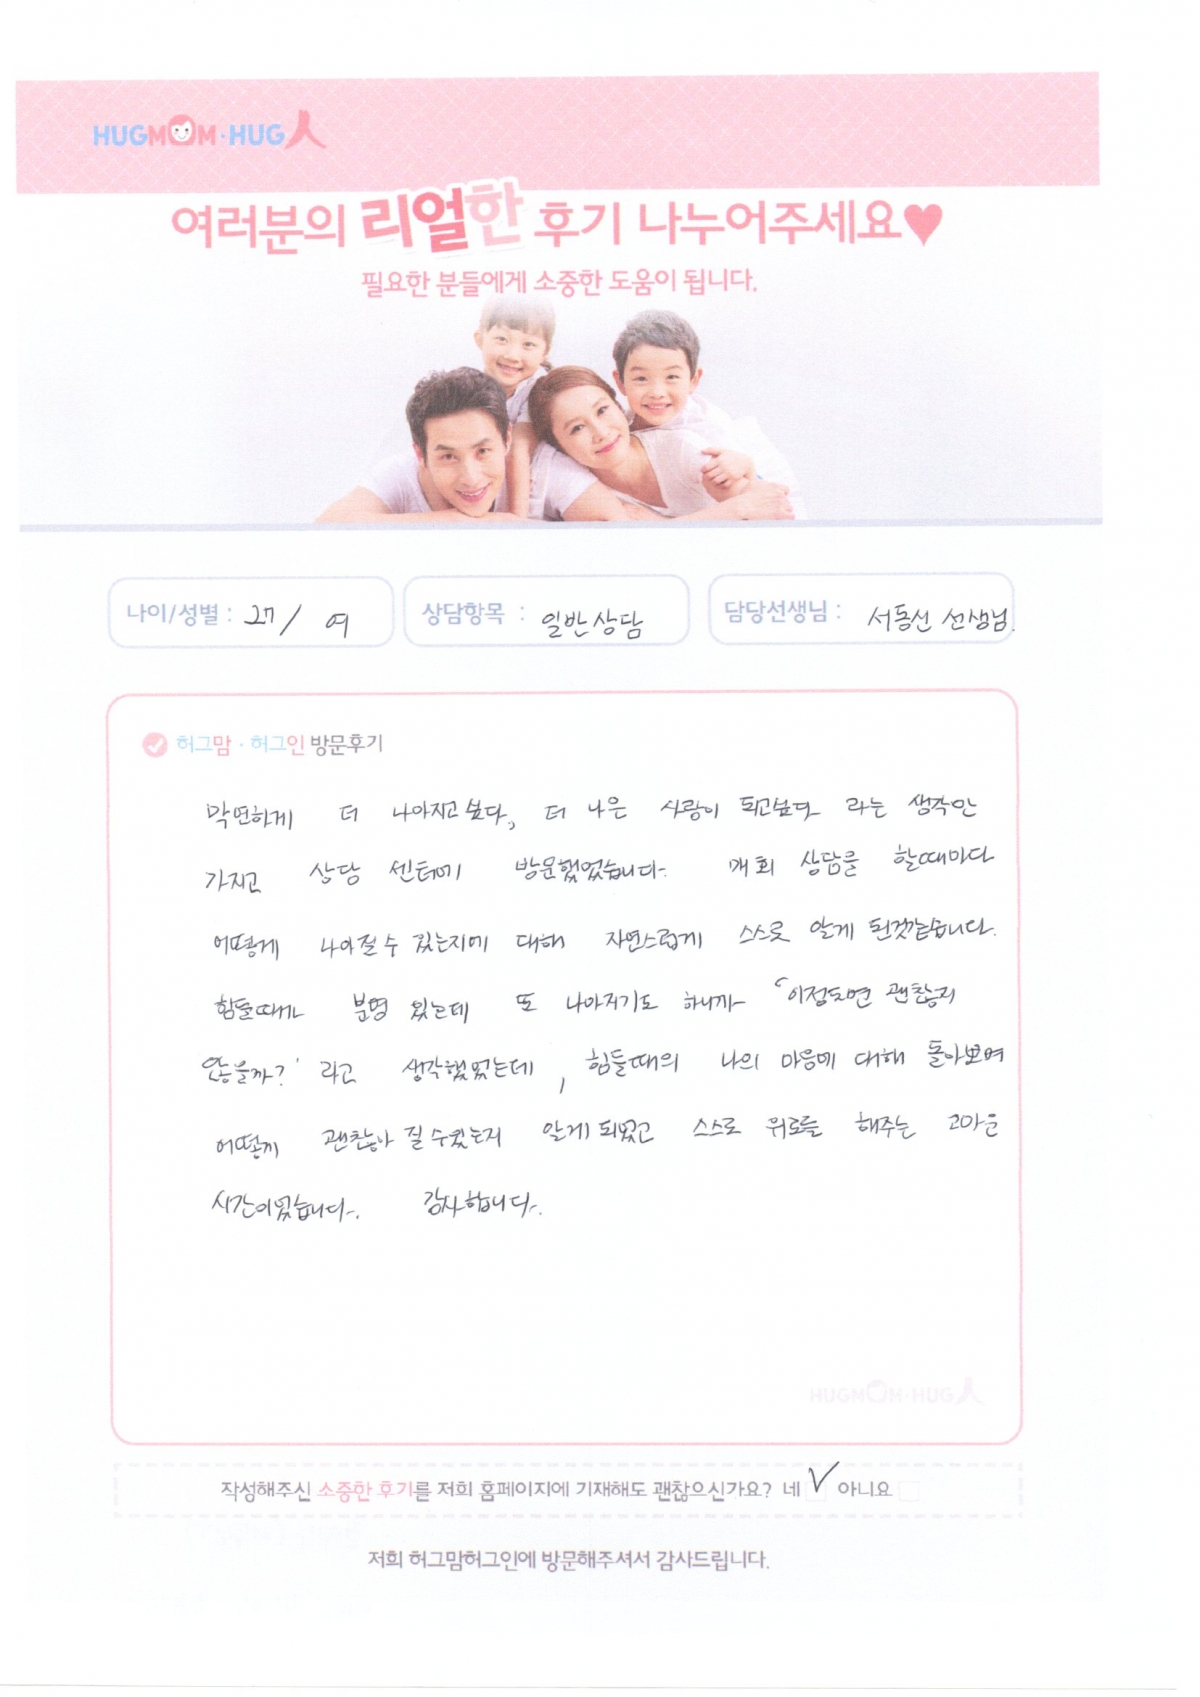 HUGMOM·HUG人
여러분의 리얼한 후기 나누어주세요♥
필요한 분들에게 소중한 도움이 됩니다.
나이/성별 : 27 / 여
상담항목 : 일반상담
담당선생님 : 서동선 선생님.
허그맘 · 허그인 방문후기
막연하게 더 나아지고싶다, 더 나은 사람이 되고싶다 라는 생각만
가지고 상담 센터에 방문했었습니다. 매회 상담을 할때마다
어떻게 나아질수 있는지에 대해 자연스럽게 스스로 알게 된것같습니다.
힘들때가 분명 있는데 또 나아지기도 하니까 '이정도면 괜찮지
않을까?' 라고 생각했었는데, 힘들때의 나의 마음에 대해 돌아보며
어떻게 괜찮아 질수있는지 알게 되었고 스스로 위로를 해주는 고마운
시간이었습니다. 감사합니다.
HUGMOM·HUG人
작성해주신 소중한 후기를 저희 홈페이지에 기재해도 괜찮으신가요? 네 ✓ 아니요
저희 허그맘허그인에 방문해주셔서 감사드립니다.